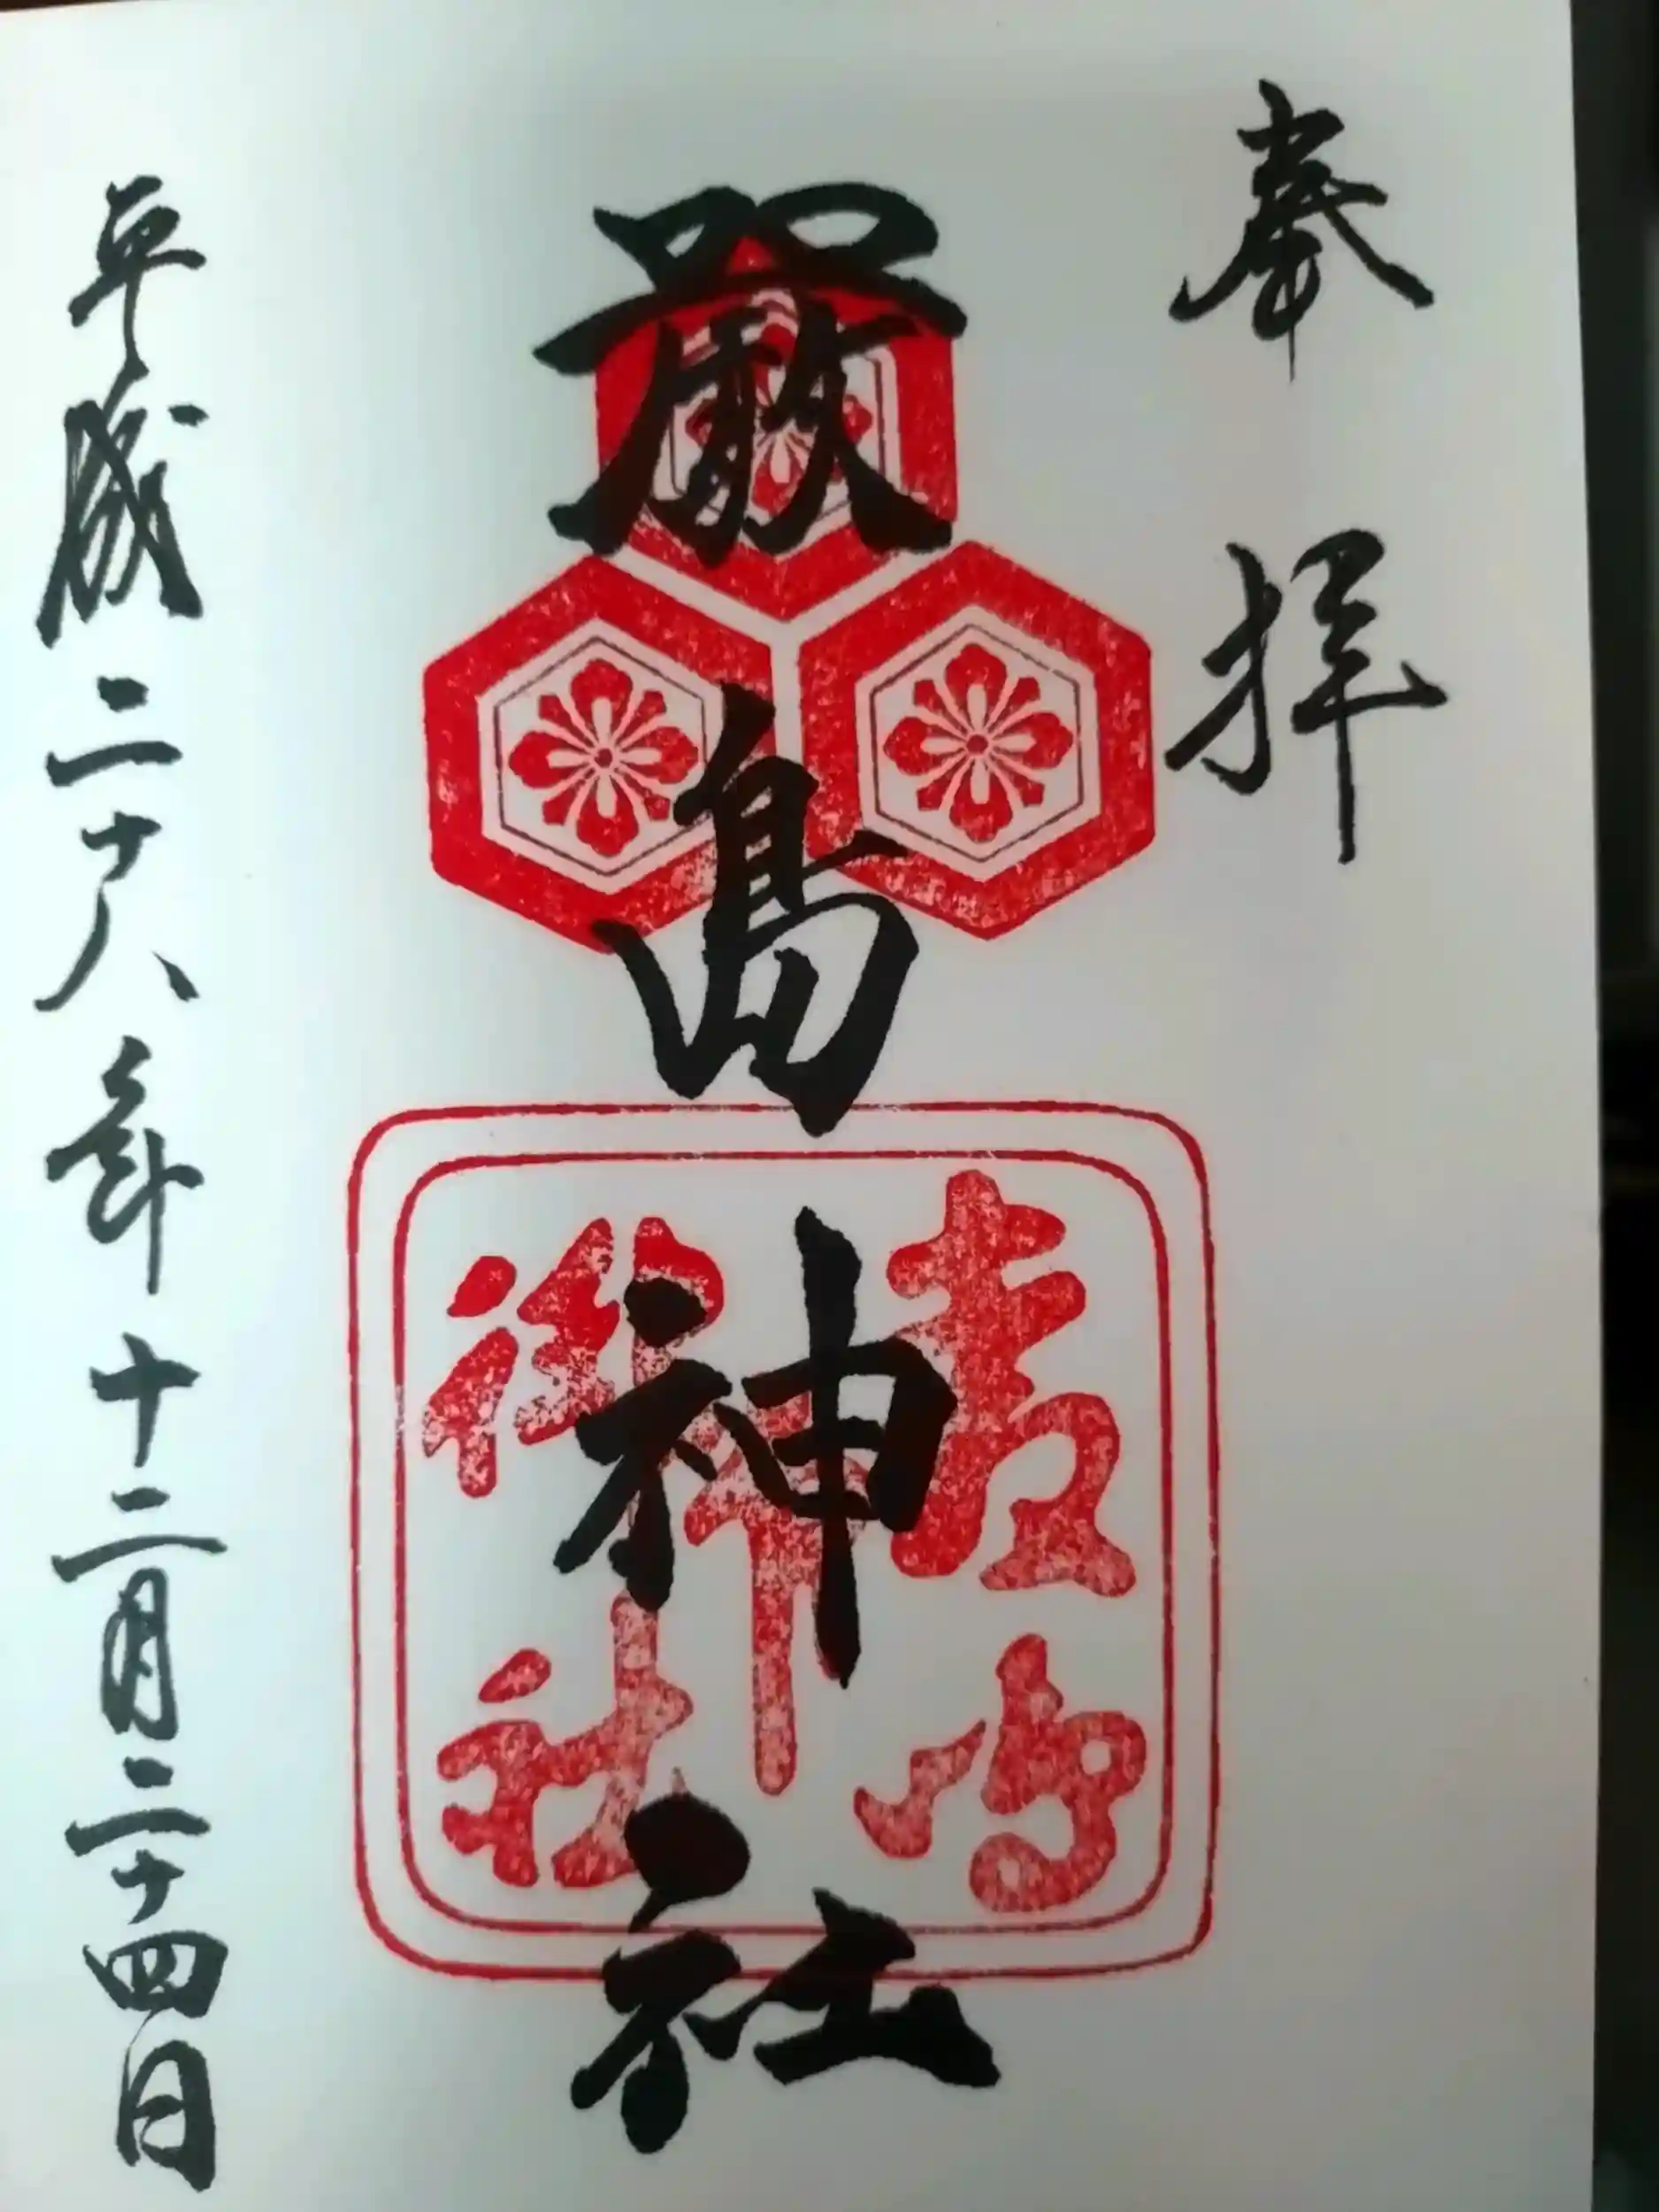 奉拝
嚴島神社
平成二十八年十二月二十四日